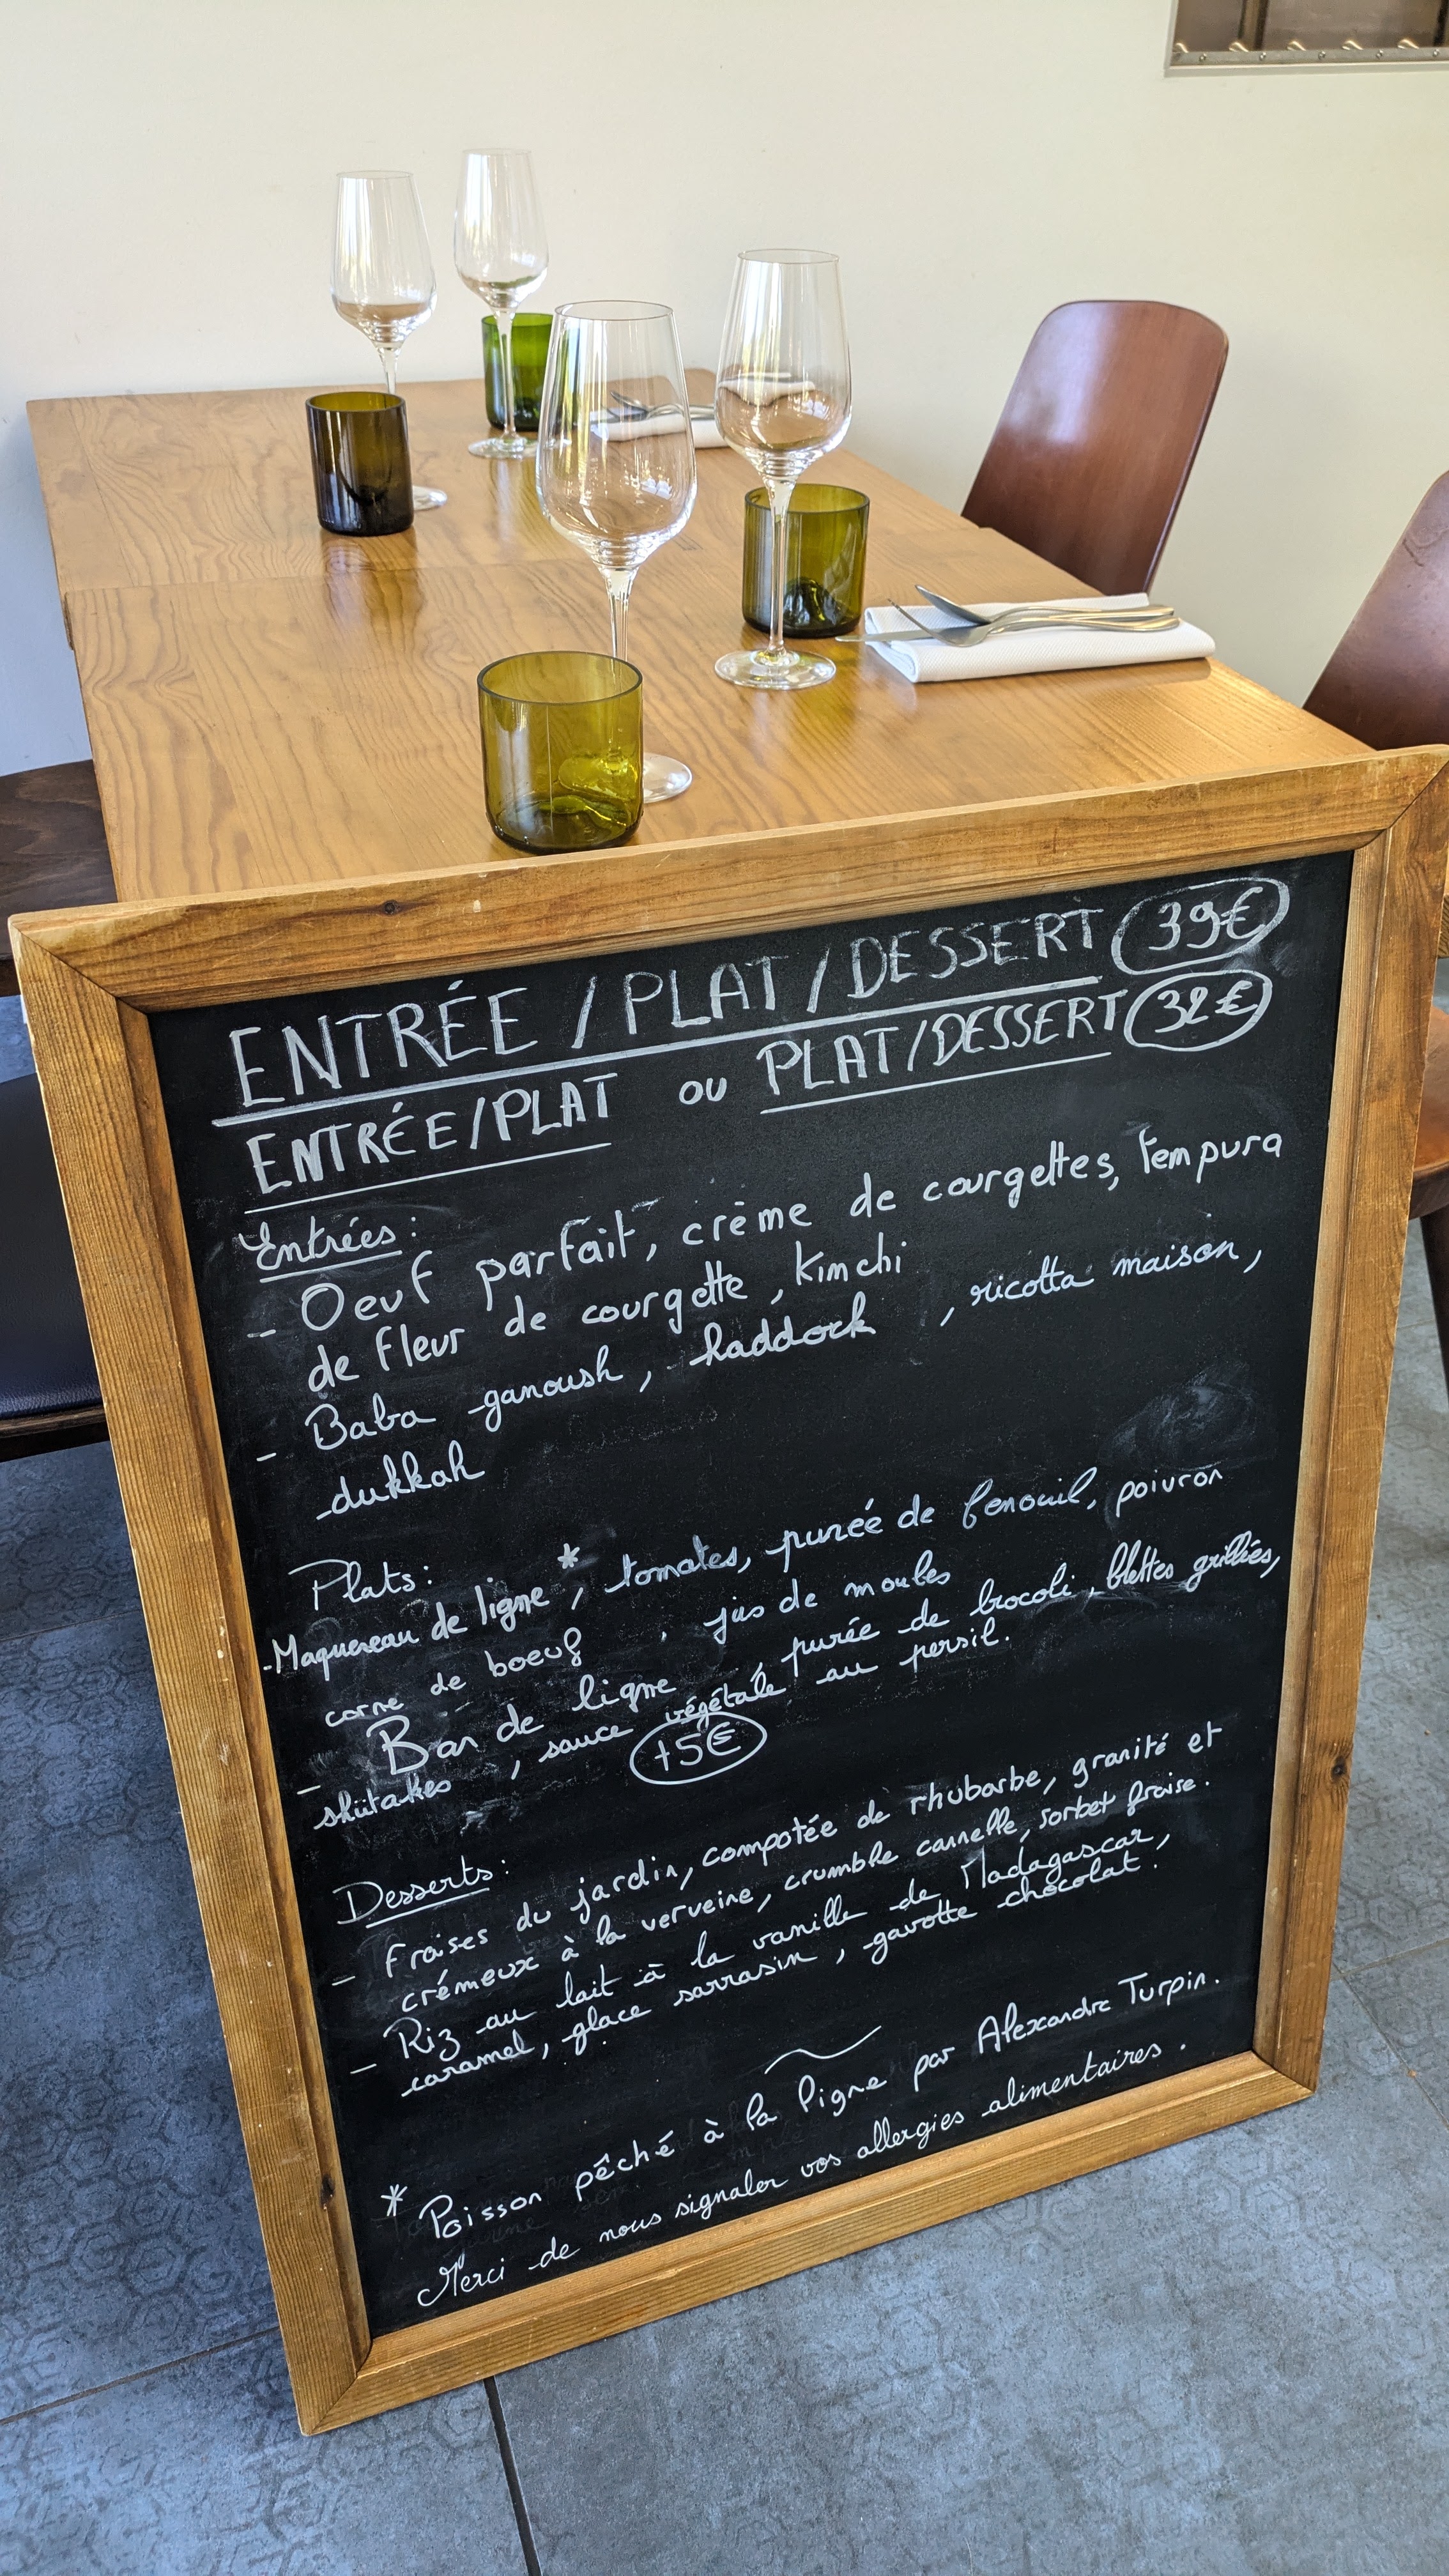 ENTRÉE / PLAT / DESSERT 39€
ENTRÉE/PLAT ou PLAT/DESSERT 32€
Entrées :
- Oeuf parfait, crème de courgettes, tempura
de fleur de courgette, kimchi
- Baba ganoush, haddock , ricotta maison,
dukkah
Plats :
- Maquereau de ligne*, tomates, purée de fenouil, poivron
corne de boeuf , jus de moules
- Bar de ligne , purée de brocoli, blettes grillées,
shiitakes , sauce végétale au persil.
+5€
Desserts :
- Fraises du jardin, compotée de rhubarbe, granité et
crémeux à la verveine, crumble cannelle, sorbet fraise.
- Riz au lait à la vanille de Madagascar,
caramel, glace sarrasin, gavotte chocolat.
* Poisson pêché à la ligne par Alexandre Turpin.
Merci de nous signaler vos allergies alimentaires.